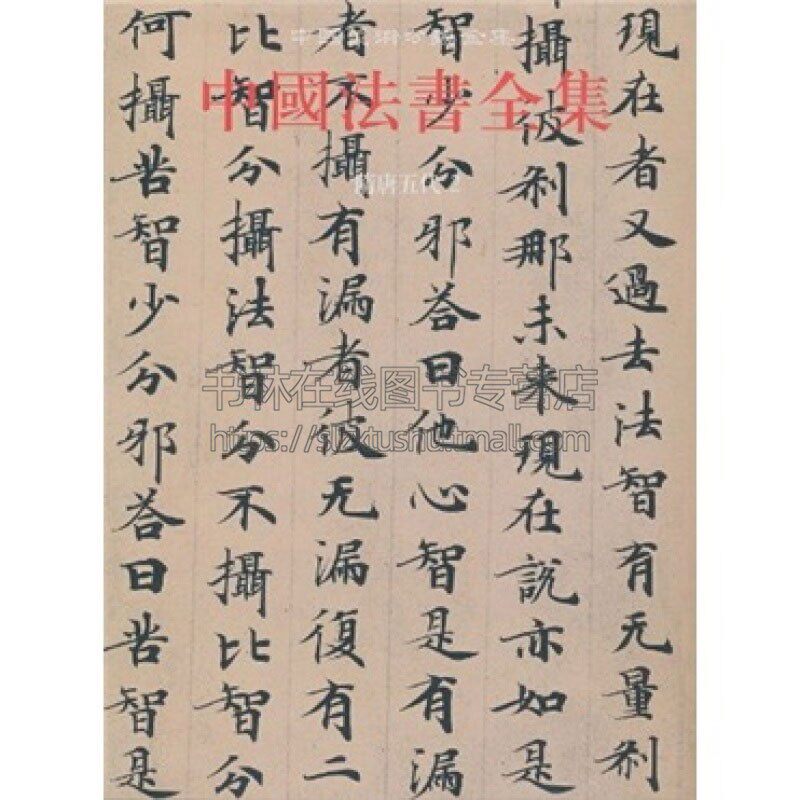 中國美術分類全集
中國法書全集
隋唐五代 2
現在者又過去法智有无量刹
攝彼刹那未来現在說亦如是
智少分邪荅曰他心智是有漏
者不攝有漏者彼无漏復有二
比智分攝法智分不攝比智分
何攝苦智少分邪荅曰苦智是
书林在线图书专营店
https://slzxtushu.tmall.com